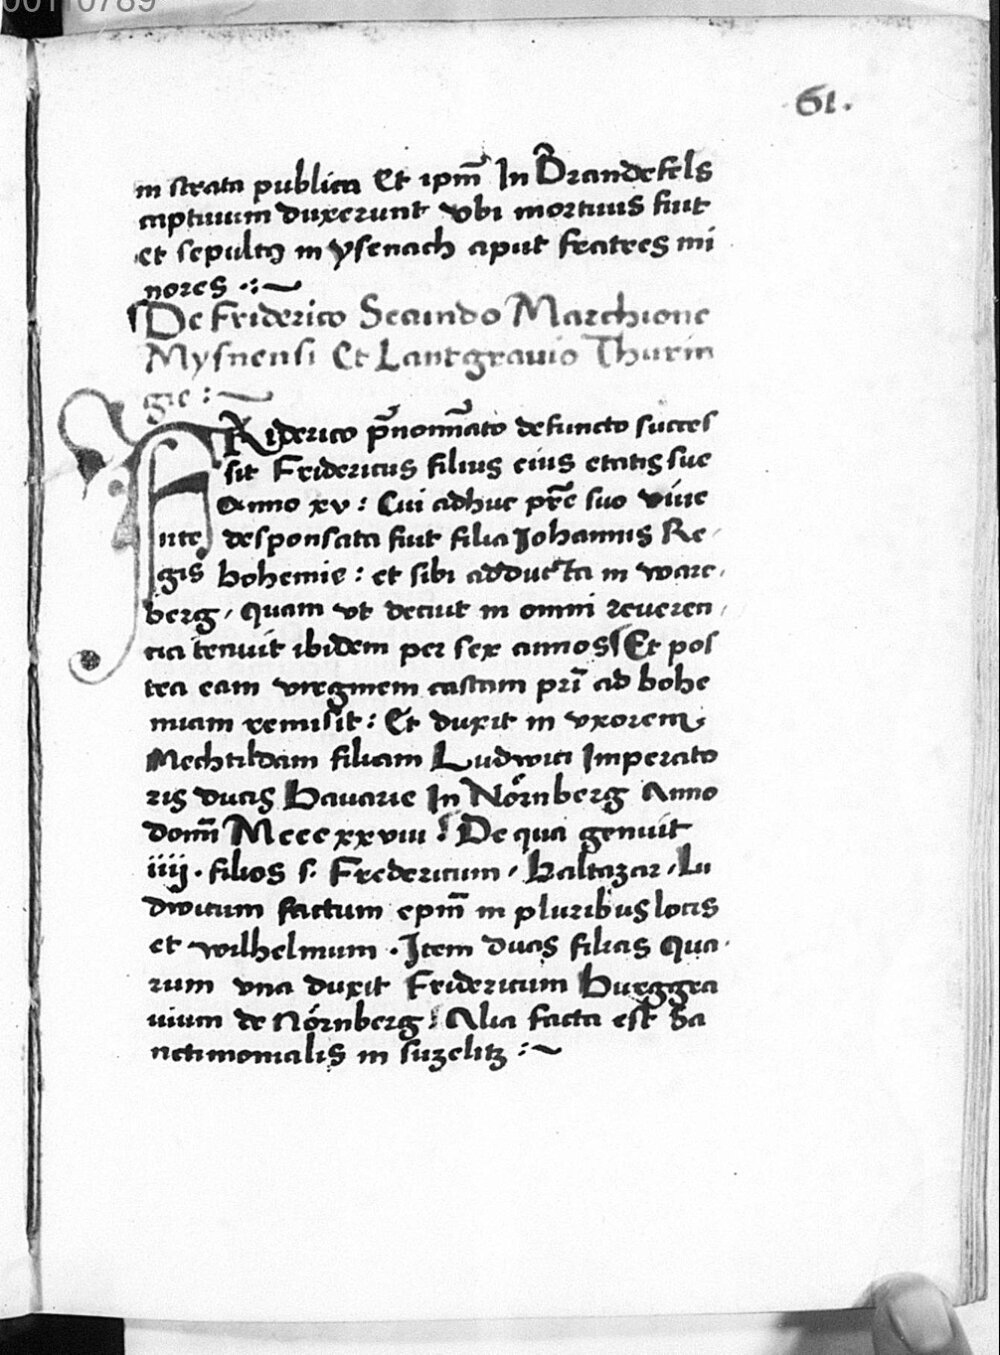 00110789
61.
in strata publica Et ipm̄ In Brandefels
captiuum duxerunt vbi mortuus fuit
et sepultꝯ in ysenach aput fratres mi
nores .:~
De Friderico Secundo Marchione
Mysnensi Et Lantgrauio Thurin
gie :~
FRiderico p̄nomīato defuncto succes
sit Fridericus filius eius etatis sue
Anno xv : Cui adhuc pr̄e suo viue
nte desponsata fuit filia Johannis Re
gis bohemie : et sibi adducta in ware,
berg, quam vt decuit in omni reueren,
cia tenuit ibidem per sex annos Et pos
tea eam virginem castam pr̄i ad bohe
miam remisit : Et duxit in vxorem
Mechtildam filiam Ludwici Imperato
ris ducis Bauarie In Nörnberg Anno
domī Mcccxxviii : De qua genuit
iiij . filios s. Fredericum, Baltazar, Lu
dwicum factum epm̄ in pluribus locis
et wilhelmum . Item duas filias Qua
rum vna duxit Fridericum Burggra
uium de Nörnberg : Alia facta est Sa
nctimonialis in suzelitz :~